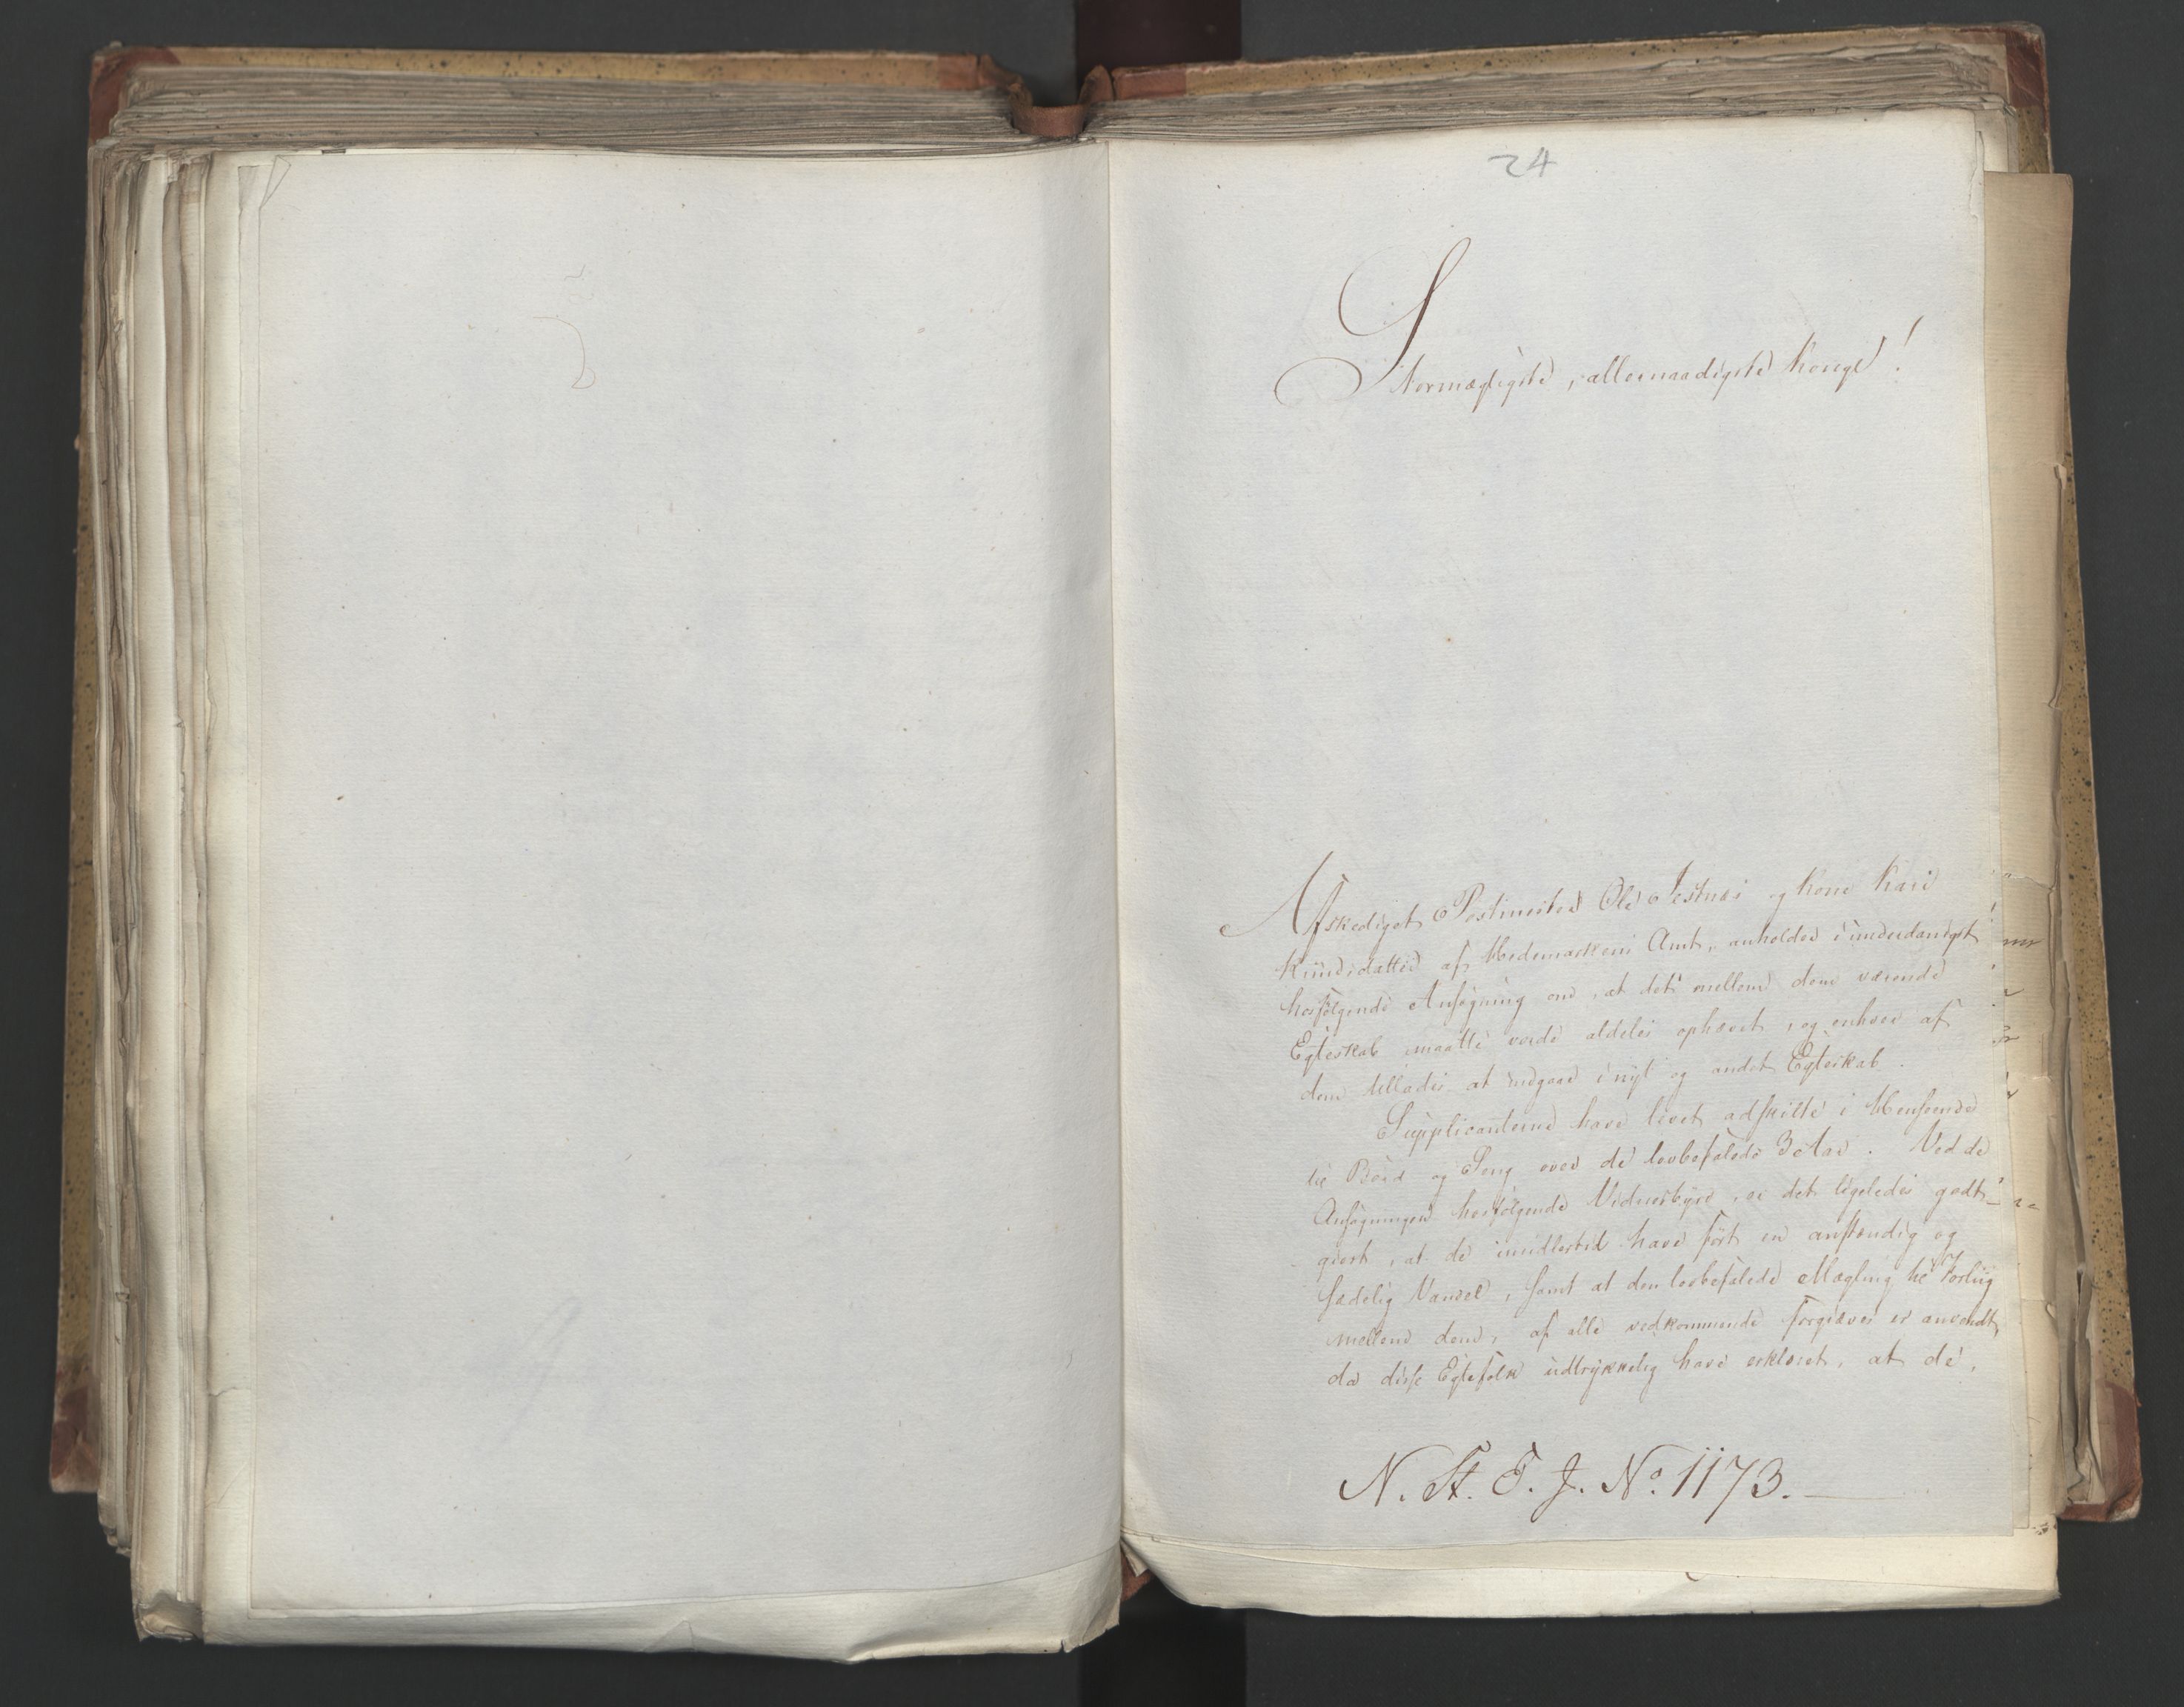 24
Stormægtigste, allernaadigste Konge!
Afskediget Postmester Ole Jestnæs og Kone Kari
af Hedemarkens Amt, anholder i underdanigst
hosfølgende Ansøgning om, at det mellem dem værende
Egteskab maatte vorde aldeles ophævet, og enhver af
dem tillades at indgaae i nyt og andet Egteskab.
Supplicanterne have levet adskilte i Henseende
til Bord og Seng over de lovbefalede 3 Aar. Ved de
Ansøgningen hosfølgende Vidnesbyrd, er det ligeledes godt-
giort, at de imidlertid have ført en anstændig og
sædelig Vandel, samt at den lovbefalede Mægling til Forliig
mellem dem, af alle vedkommende forgiæves er anvendt,
da disse Egtefolk udtrykkelig have erklæret, at de,
N. St. E. J. No. 1173.